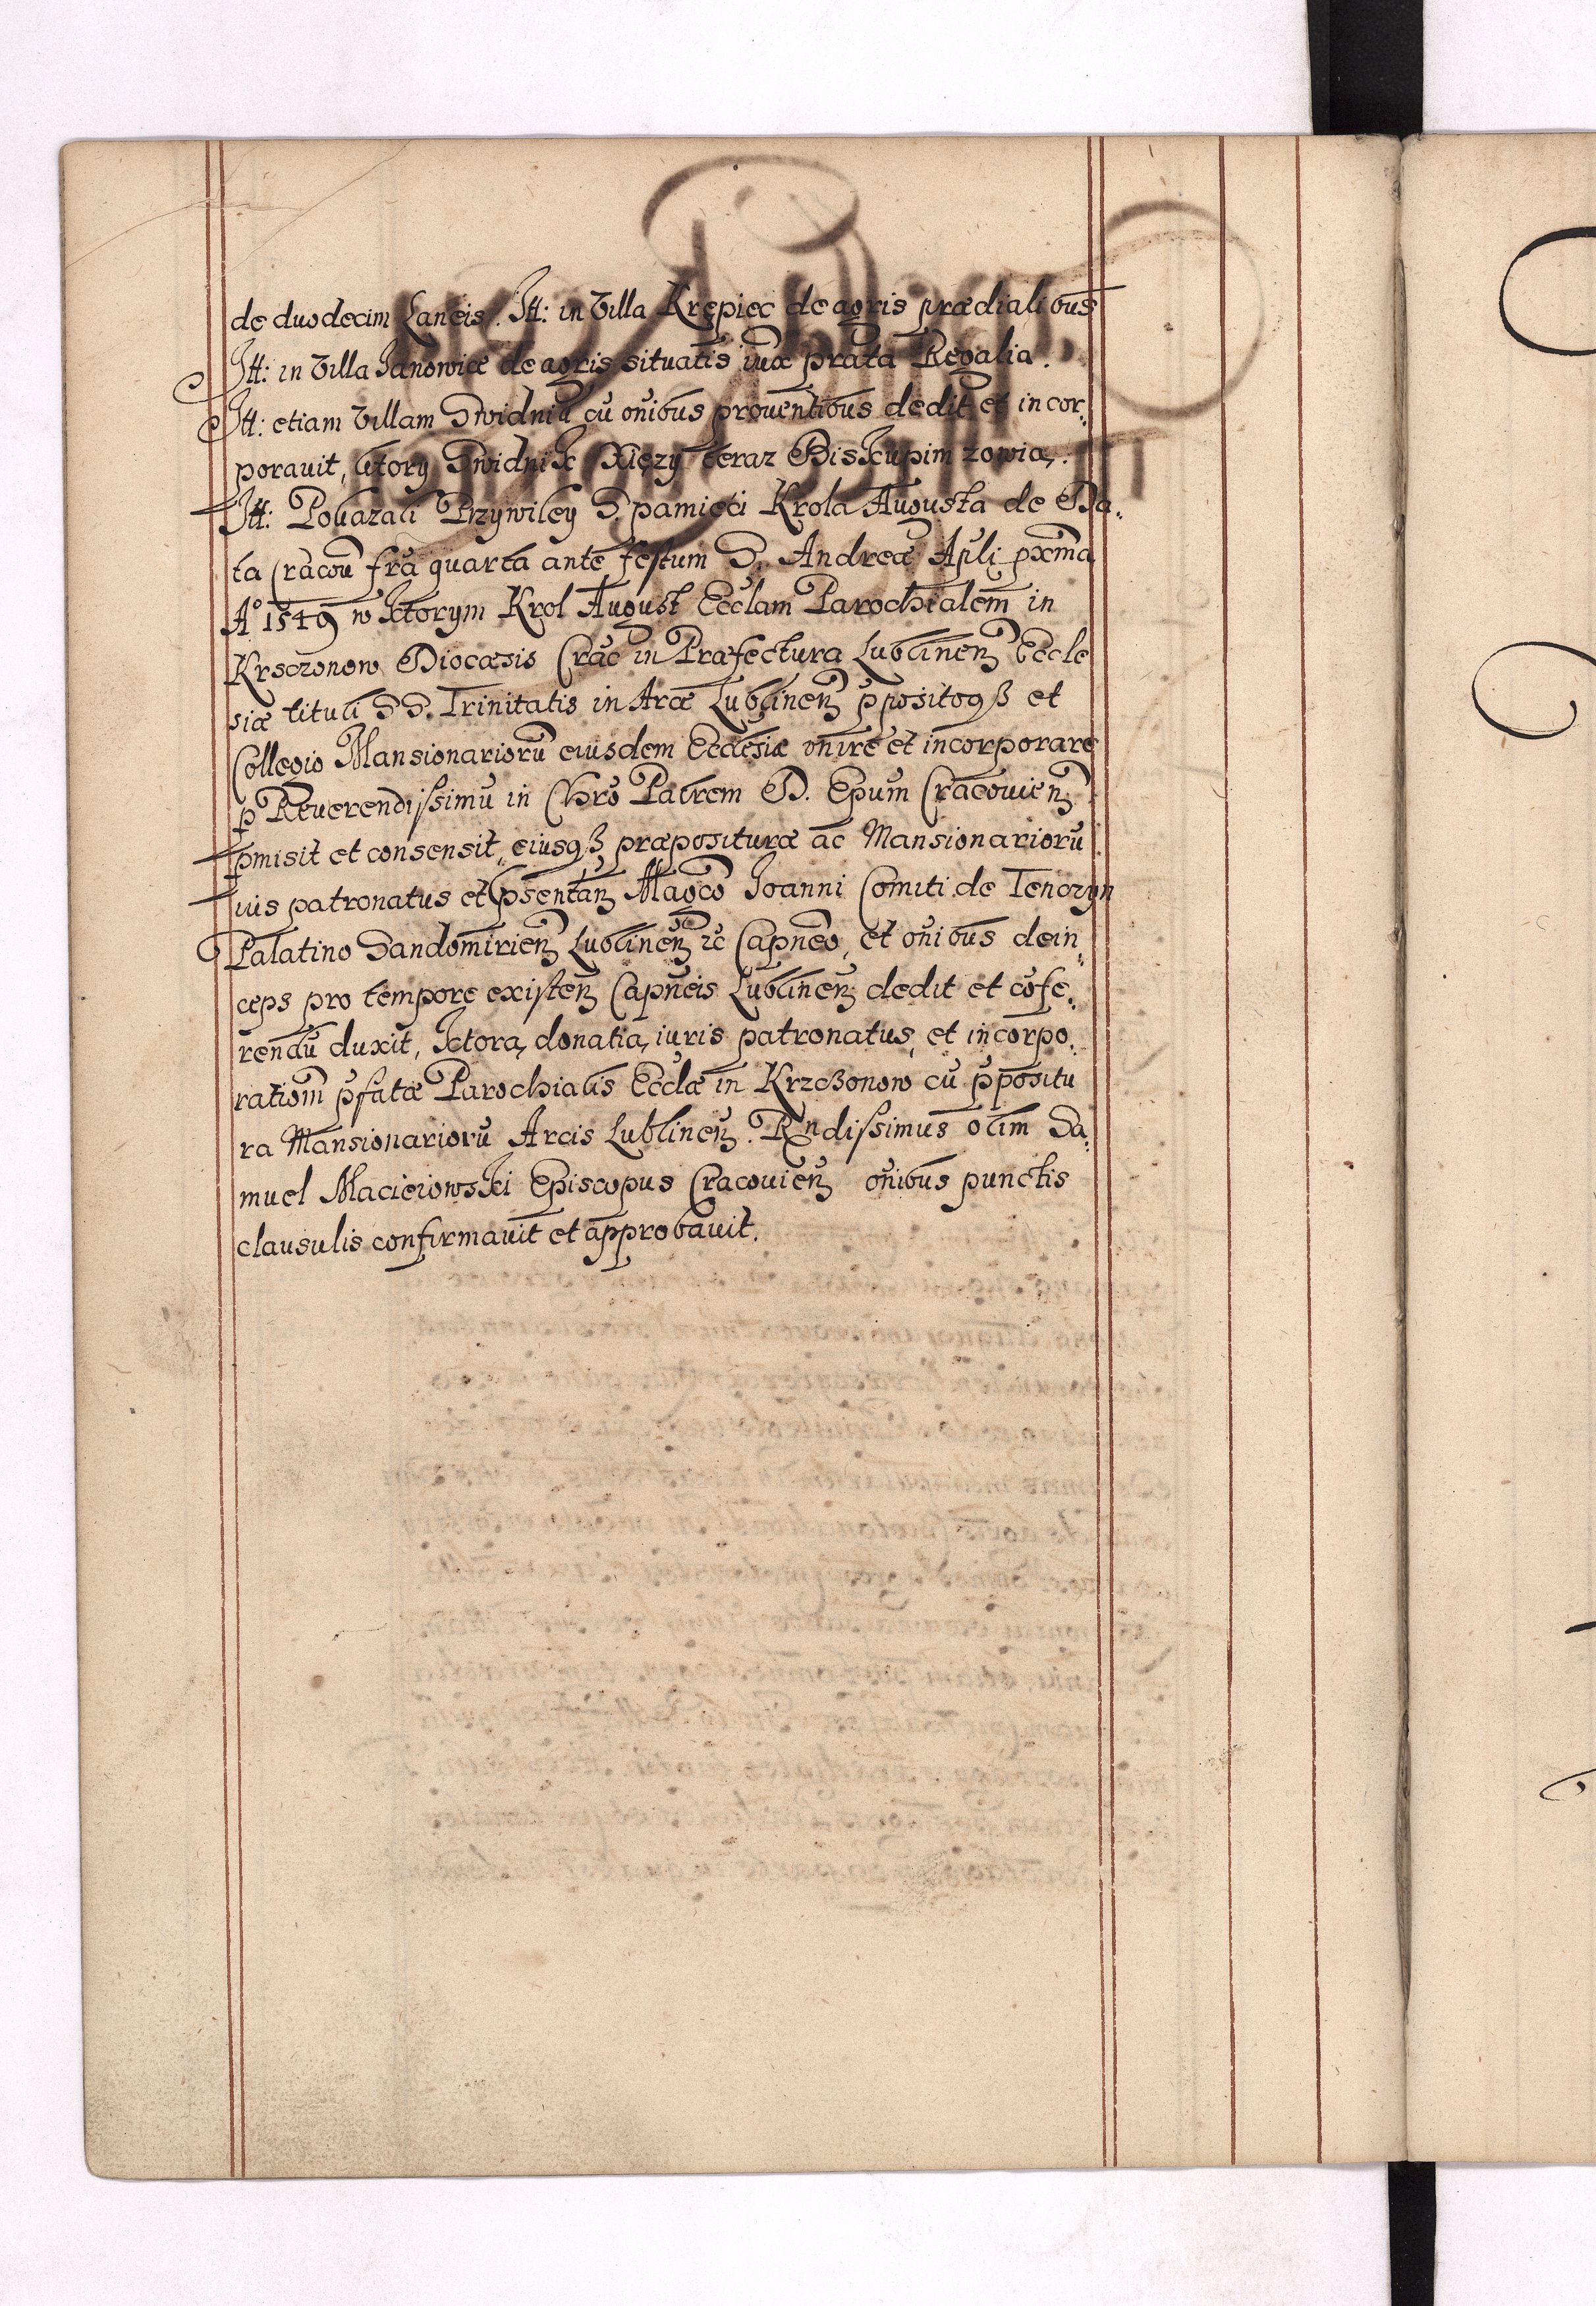 de duodecim Laneis. Itt: in Villa Krępiec de agris prædialibus
Itt: in Villa Janowice de agris situatis iuxa prata Regalia.
Itt: etiam Villam Swidniū cū oñibus prouentibus dedit et incor„
porauit, ktory Swidnik Xięży teraz Biskupim zowią.
Itt: Pokazali Przywiley S. pamięci Krola Augusta de Da„
ta Cracou frā quarta ante festum S. Andreæ Apli pxmā
A° 1549 w ktorym Krol August Ecclam Parochialem in
Krsczonow Diocæsis Crāc in Præfectura Lublinen̄ Eccle
siæ tituli SS. Trinitatis in Arce Lublinen̄ ppositoqȝ et
Collegio Mansionariorū eiusdem Ecclesiæ onire et incorporare
p Reuerendissimū in Chrō Patrem D. Epum Cracouien̄
pmisit et consensit, eiusqȝ præposituræ ac Mansionariorū
ius patronatus et p̄sentan̄ Magco Joanni Comiti de Tenczyn
Palatino Sandomirien̄ Lublinen̄ rc Capneo, et oñibus dein„
ceps pro tempore existen̄ Capneis Lublinen̄ dedit et cōfe„
rendū duxit, ktorą donatią iuris patronatus, et incorpo„
rationm p̄fatæ Parochialis Ecclæ in Krzczonow cū p̄positu
ra Mansionariorū Arcis Lublinen̄. Rndissimus olim Sa„
muel Macieiowski Episcopus Cracouien̄ oñibus punctis
clausulis confirmauit et approbauit.